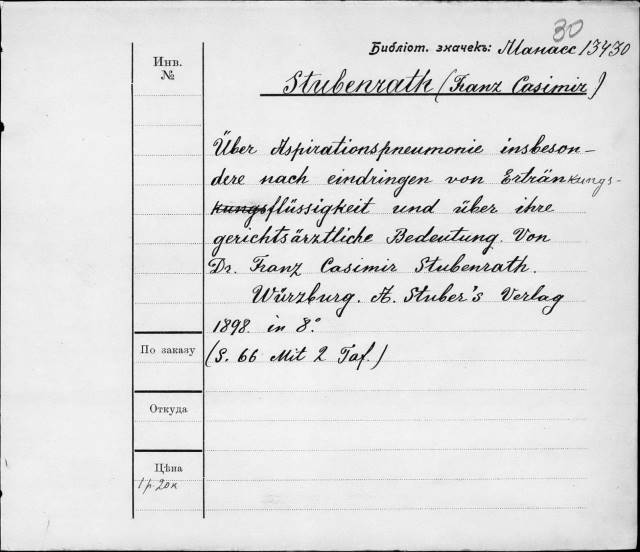 30
Библіот. значекъ: Манасс 13430
Инв.
№
Stubenrath (Franz Casimir)
Über Aspirationspneumonie insbeson-
dere nach eindringen von Ertränkungs-
kungsflüssigkeit und über ihre
gerichtsärztliche Bedeutung. Von
Dr. Franz Casimir Stubenrath.
Würzburg. A. Stuber's Verlag
1898. in 8°.
По заказу
(S. 66 Mit 2 Taf.)
Откуда
Цѣна
1 р. 20 к